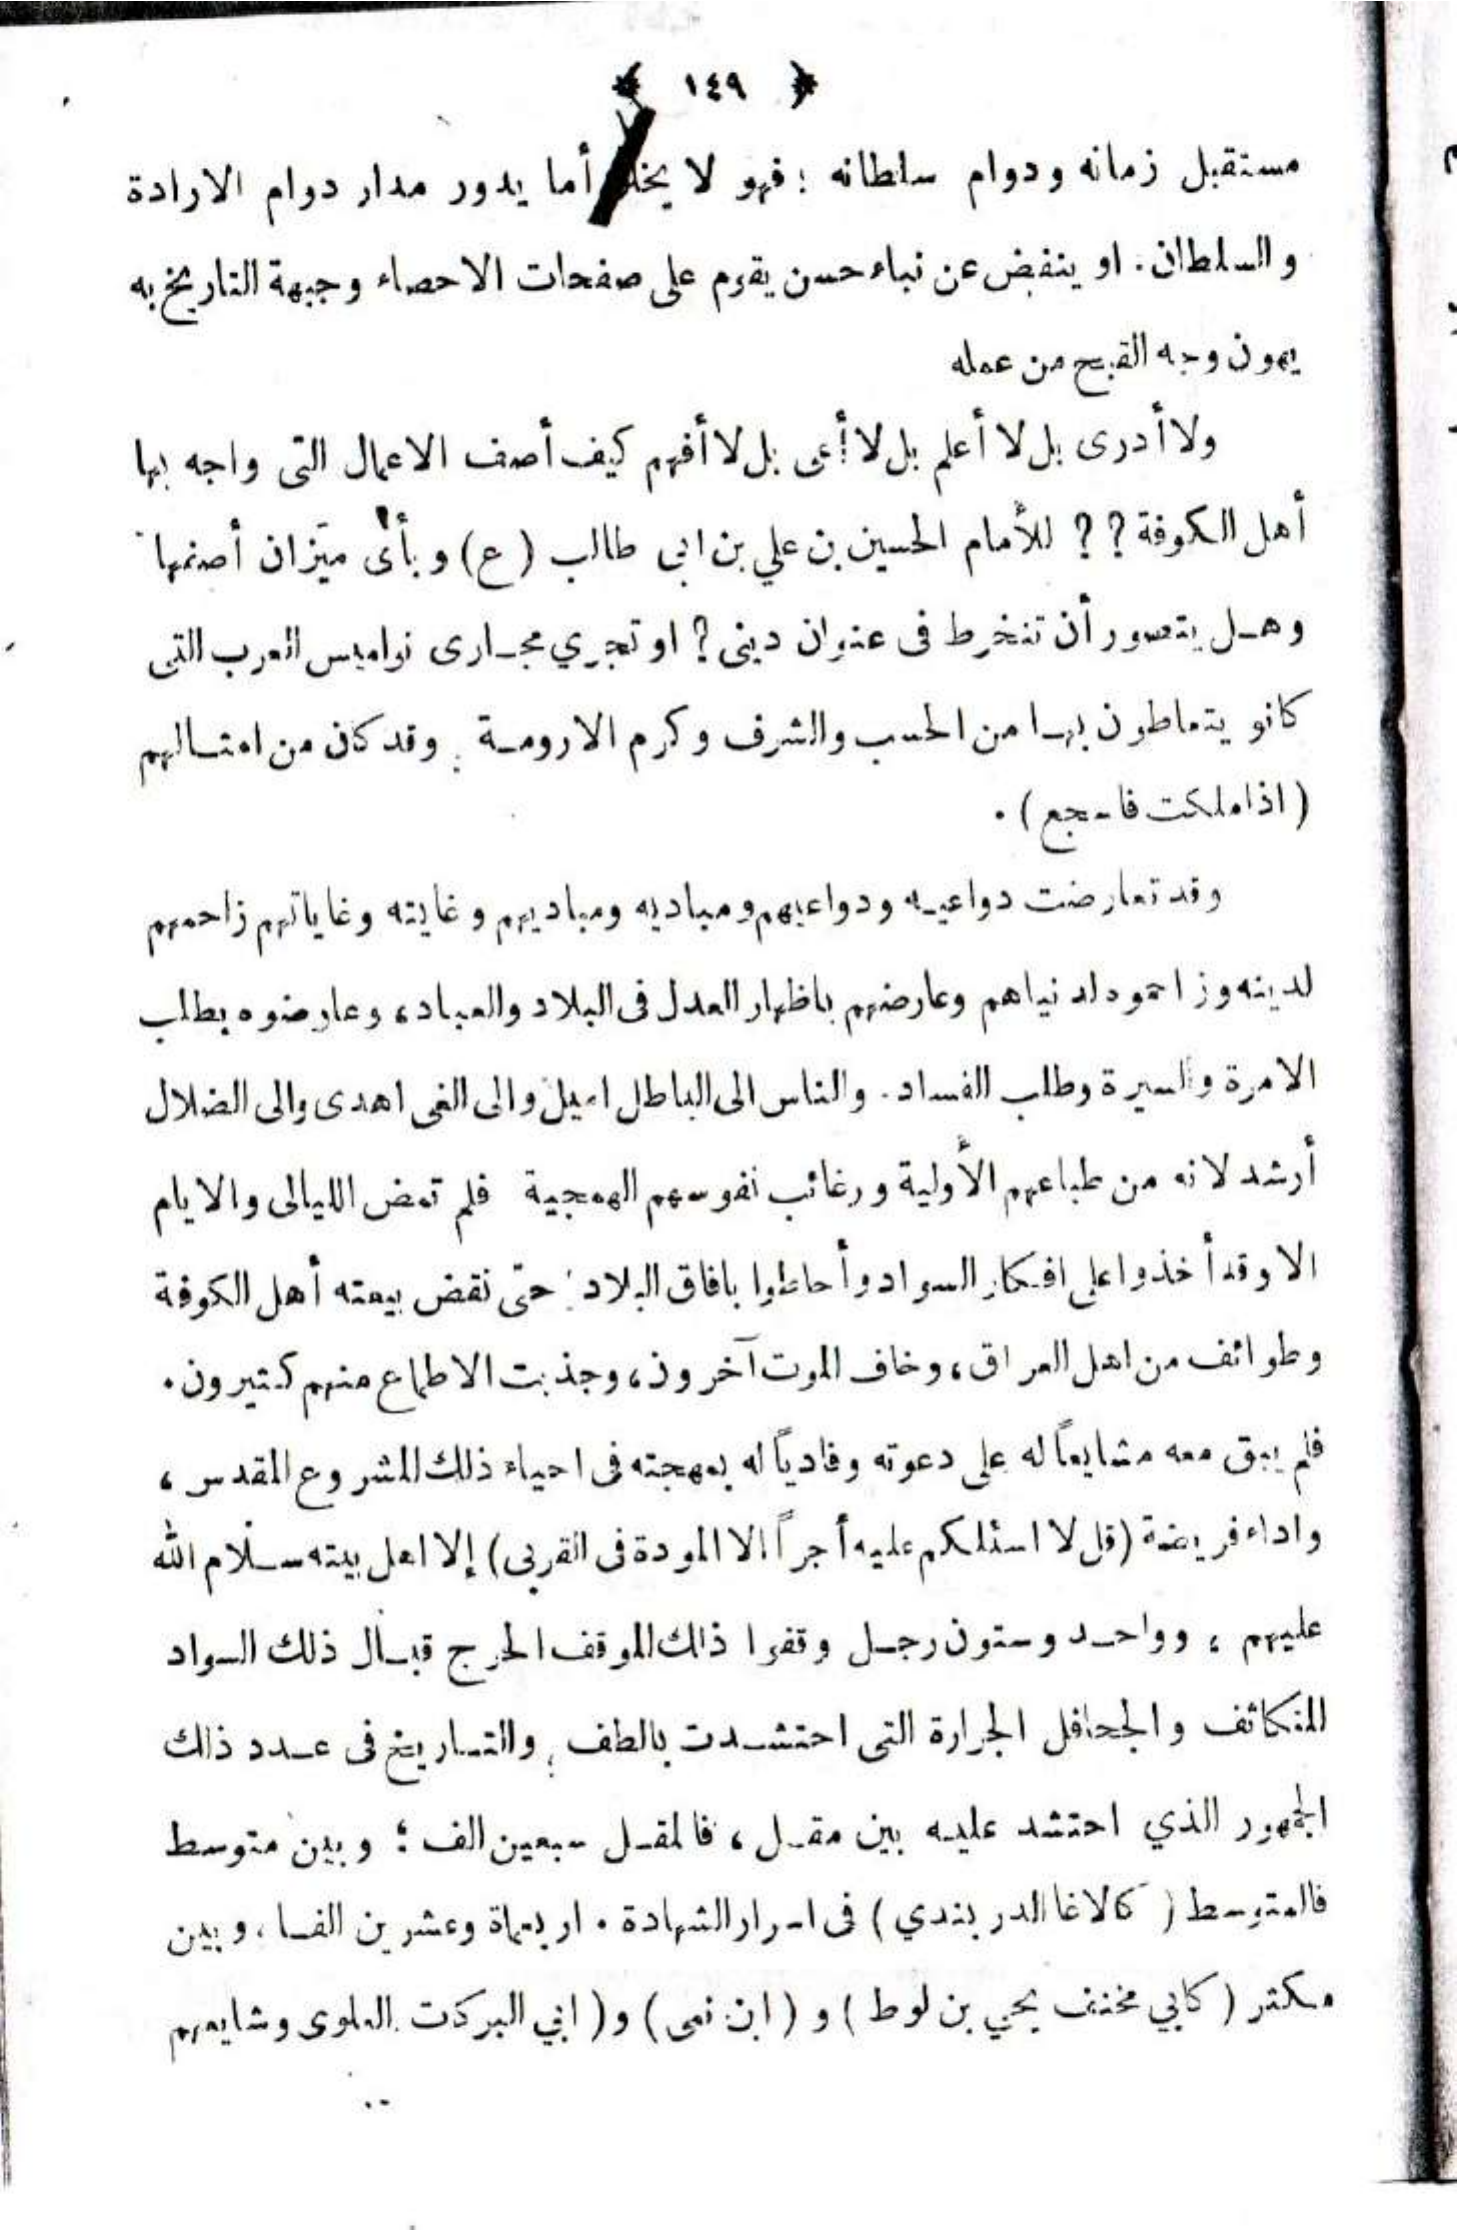 ﴿ ١٤٩ ﴾
مستقبل زمانه ودوام سلطانه ؛ فهو لا أما يدور مدار دوام الارادة
والسلطان . او ينفض عن نباء حسن يقوم على صفحات الاحصاء وجبهة التاريخ به
يهون وجه القبح من عمله
ولا أدرى بل لا أعلم بل لا أعى بل لا أفهم كيف أصف الاعمال التى واجه بها
أهل الكوفة ? ? للأمام الحسين بن علي بن ابى طالب (ع) و بأى ميزان أصنفها
وهل يتصور أن تنخرط فى عنوان دينى ? او تجري مجارى نواميس العرب التى
كانو يتعاطون بها من الحسب والشرف وكرم الارومة . وقد كان من امثالهم
( اذا ملكت فاسجع ) .
وقد تعارضت دواعيه ودواعيهم ومباديه ومباديهم وغايته وغاياتهم زاحمهم
لدينه وزاحموه لدنياهم وعارضهم باظهار العدل فى البلاد والعباد، وعارضوه بطلب
الامرة والسيرة وطلب الفساد . والناس الى الباطل اميل والى الغى اهدى والى الضلال
أرشد لانه من طباعهم الأولية ورغائب نفوسهم الهمجية فلم تمض الليالى والايام
الا وقد أخذوا على افكار السواد وأحاطوا بافاق البلاد . حتى نقض بيعته أهل الكوفة
وطوائف من اهل العراق ، وخاف الموت آخرون ، وجذبت الاطماع منهم كثيرون .
فلم يبق معه مشايعاً له على دعوته وفادياً له بمهجته فى احياء ذلك المشروع المقدس ،
واداء فريضة (قل لا اسئلكم عليه أجراً الا المودة فى القربى) إلا اهل بيته سلام الله
عليهم ، وواحد وستون رجل وقفوا ذلك الموقف الحرج قبال ذلك السواد
المتكاثف والجحافل الجرارة التى احتشدت بالطف ، والتاريخ فى عدد ذلك
الجمهور الذي احتشد عليه بين مقل ، فالمقل سبعين الف ؛ وبين متوسط
فالمتوسط ( كالاغا الدربندي ) فى اسرار الشهادة . اربعماة وعشرين الفا ، وبين
مكثر ( كابي مخنف يحيي بن لوط ) و ( ابن نمى ) و ( ابي البركت العلوى وشايعهم